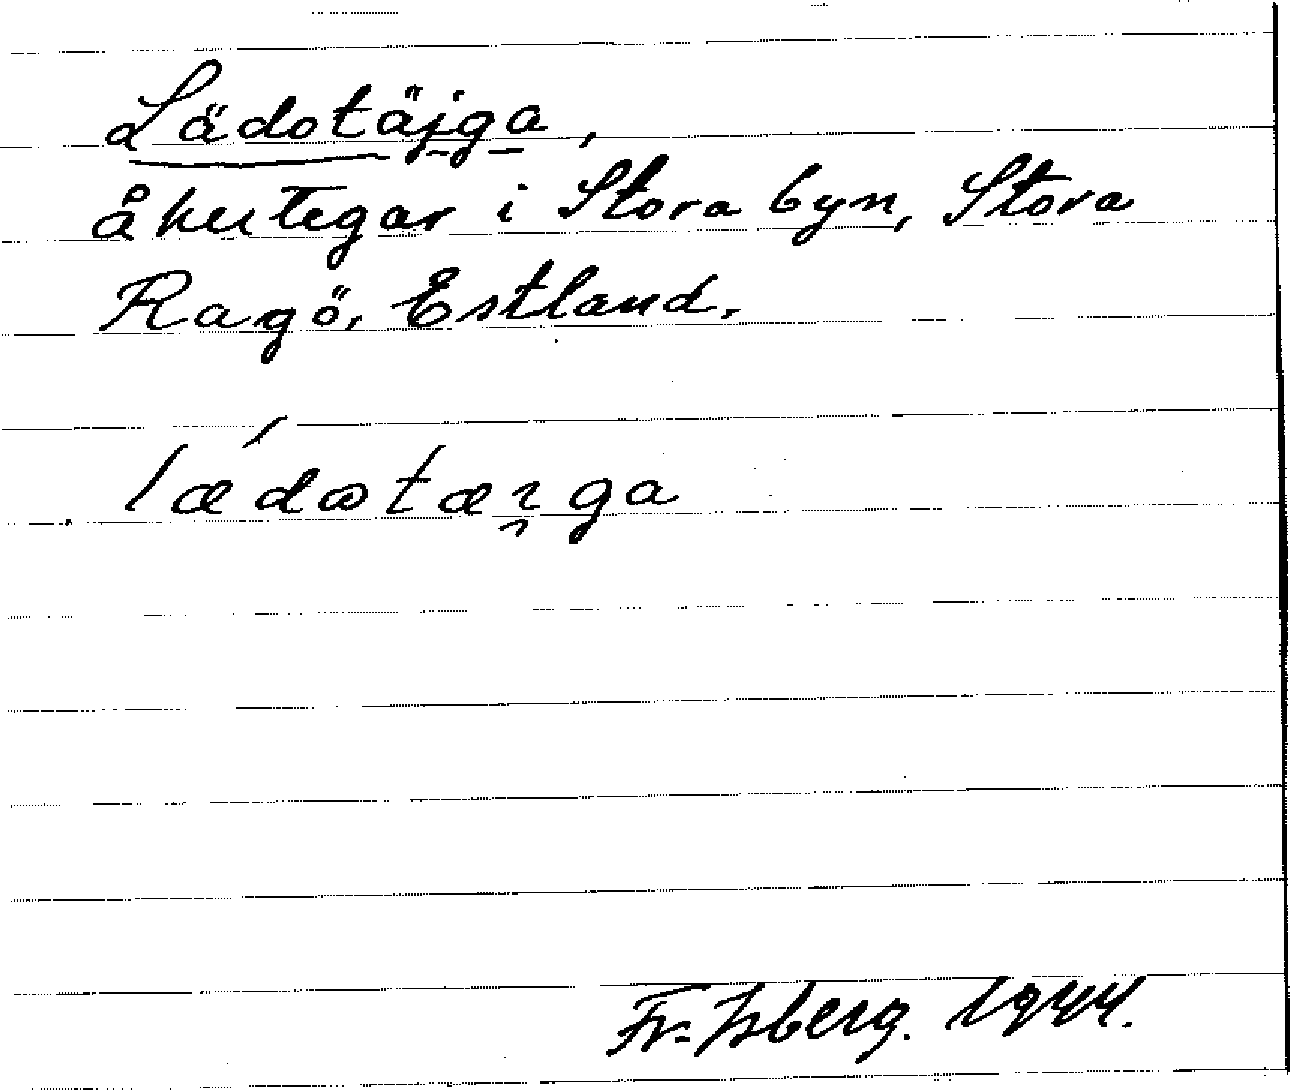 Lädotäjga,
åkertegar i Stora byn, Stora
Ragö, Estland.
lædωtæɿ̯ga
Fr. Isberg. 1944.